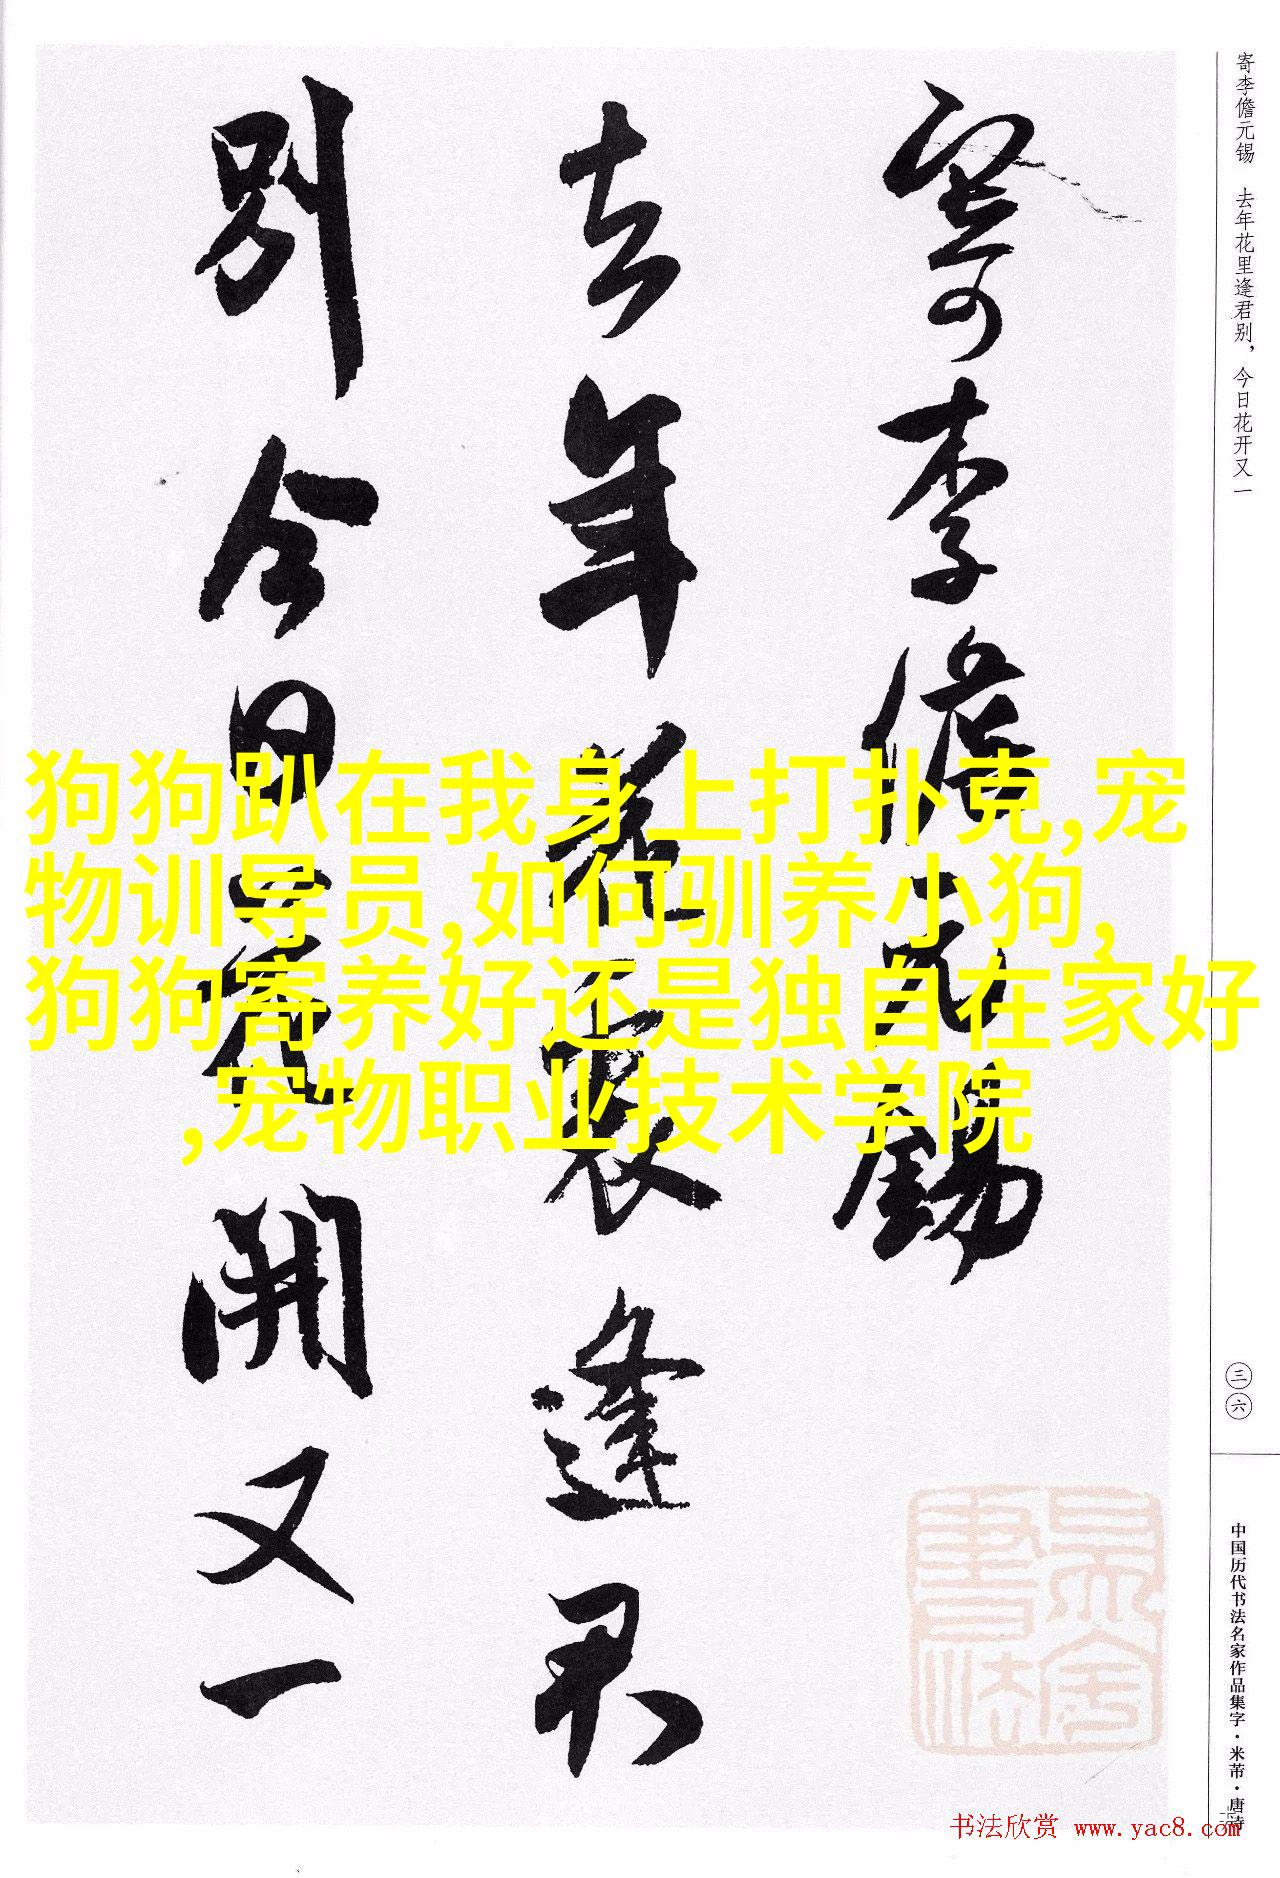 寄李儋元锡　去年花里逢君别，今日花开又一
三六
中国历代书法名家作品集字·米芾·唐诗
寄李儋元錫
去年花裏逢君
别今日花開又一
狗狗趴在我身上打扑克,宠
物训导员,如何驯养小狗,
狗狗寄养好还是独自在家好
,宠物职业技术学院
书法欣赏 www.yac8.com